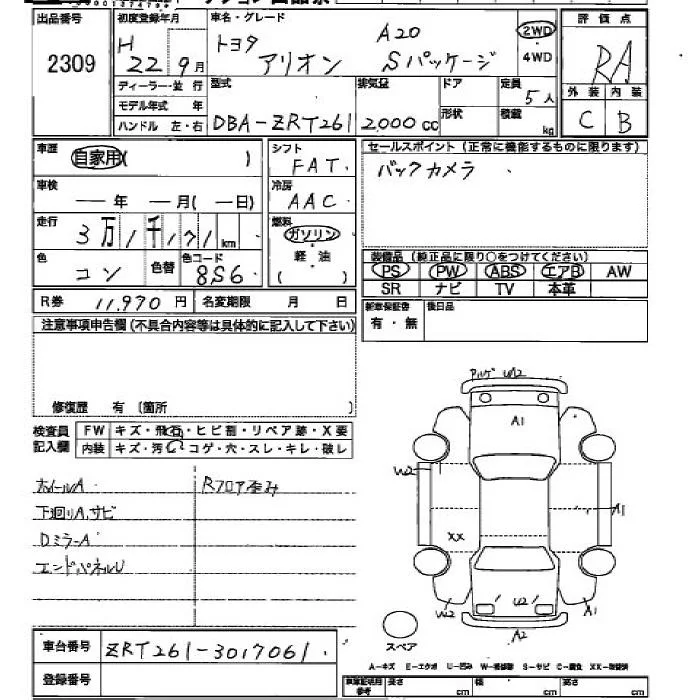 出品番号 初度登録年月 車名・グレード 評価点
2309 H 22 9月 トヨタ アリオン A20 Sパッケージ 2WD 4WD RA
ディーラー・並行 型式 排気量 ドア 定員 5人 外装 内装
モデル年式 年 形状 積載 kg
ハンドル 左・右 DBA-ZRT261 2000cc C B
車歴 自家用( ) シフト FAT セールスポイント (正常に機能するものに限ります)
車検 ー年 ー月(ー日) 冷房 AAC バックカメラ
走行 3万1千171km 燃料 ガソリン
色 コン 色替 色コード 8S6 軽・油 ( )
装備品 (純正品に限り○をつけてください)
PS PW ABS エアB AW
SR ナビ TV 本革
R券 11,970円 名変期限 月 日 新車保証書 有・無 後日品
注意事項申告欄 (不具合内容等は具体的に記入して下さい)
修復歴 有 (箇所 )
検査員記入欄 FW キズ・飛石・ヒビ割・リペア跡・X要
内装 キズ・汚・コゲ・穴・スレ・キレ・破レ
ホイールA Rフロア歪み
下廻りA,サビ
DミラーA
エンドパネルU
W2
A1
W2
A1
XX
W2 U2 A1
A2
スペア
車台番号 ZRT261-3017061
登録番号
A-キズ E-エクボ U-凹み W-補修跡 S-サビ C-腐食 XX-交換済
車庫証明用参考 長さ cm 幅 cm 高さ cm